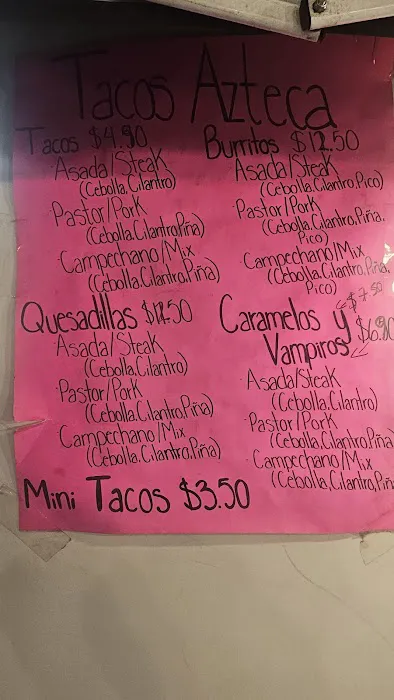 Tacos Azteca
Tacos $4.90
Asada/Steak
(Cebolla, Cilantro)
Pastor/Pork
(Cebolla, Cilantro, Piña)
Campechano/Mix
(Cebolla, Cilantro, Piña)
Quesadillas $12.50
Asada/Steak
(Cebolla, Cilantro)
Pastor/Pork
(Cebolla, Cilantro, Piña)
Campechano/Mix
(Cebolla, Cilantro, Piña)
Mini Tacos $3.50
Burritos $12.50
Asada/Steak
(Cebolla, Cilantro, Pico)
Pastor/Pork
(Cebolla, Cilantro, Piña,
Pico)
Campechano/Mix
(Cebolla, Cilantro, Piña,
Pico)
Caramelos y $7.50
Vampiros $6.90
Asada/Steak
(Cebolla, Cilantro)
Pastor/Pork
(Cebolla, Cilantro, Piña
Campechano/Mix
(Cebolla, Cilantro, Piñ